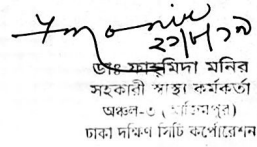 ২১/৮/১৯
ডাঃ ফাহমিদা মনির
সহকারী স্বাস্থ্য কর্মকর্তা
অঞ্চল-৩ (আজিমপুর)
ঢাকা দক্ষিণ সিটি কর্পোরেশন